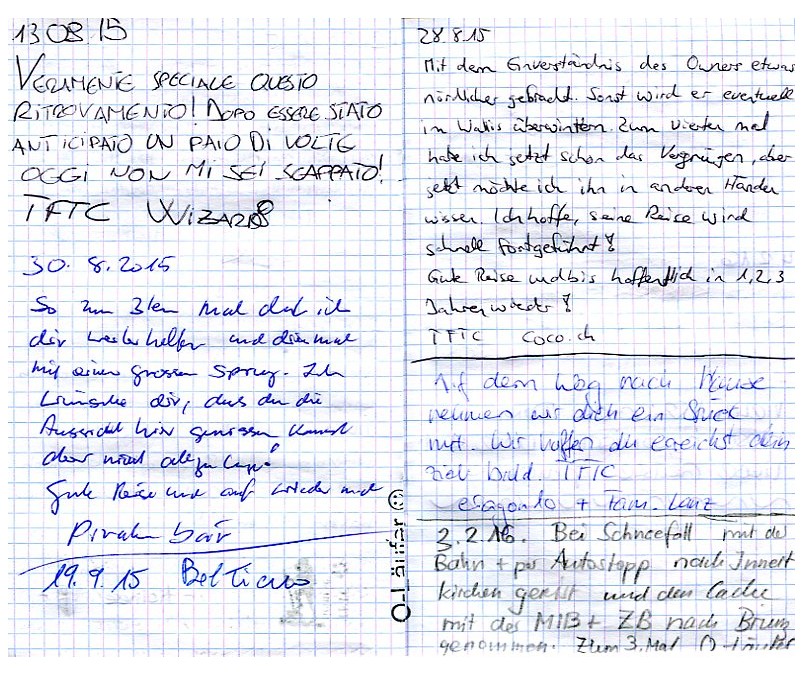 13.08.15
VERAMENTE SPECIALE QUESTO
RITROVAMENTO! DOPO ESSERE STATO
ANTICIPATO UN PAIO DI VOLTE
OGGI NON MI SEI SCAPPATO!
TFTC WIZARD8
30. 8. 2015
So zum 3ten mal darf ich
dir weiterhelfen und diesmal
mit einem grossen Sprung. Ich
wünsche dir, dass du die
Aussicht hier geniessen kannst
aber nicht allzu lange!
Gute Reise und auf wieder mal
19.9.15 Beltiano
O-Läufer ☺
28.8.15
Mit dem Einverständnis des Owners etwas
nördlicher gebracht. Sonst wird er eventuell
im Wallis überwintern. Zum vierten mal
habe ich jetzt schon das Vergnügen, aber
jetzt möchte ich ihn in anderen Händen
wissen. Ich hoffe, seine Reise wird
schnell fortgeführt!
Gute Reise und bis hoffentlich in 1,2,3
Jahren wieder!
TFTC coco.ch
Auf dem Weg nach Hause
nehmen wir dich ein Stück
mit. Wir hoffen du erreichst dein
Ziel bald. TFTC
eragondo + Fam. Lanz
3.2.16. Bei Schneefall mit der
Bahn + per Autostopp nach Innert
kirchen gereist und den Cache
mit der MIB + ZB nach Brun
genommen. Zum 3. Mal O-Läufer